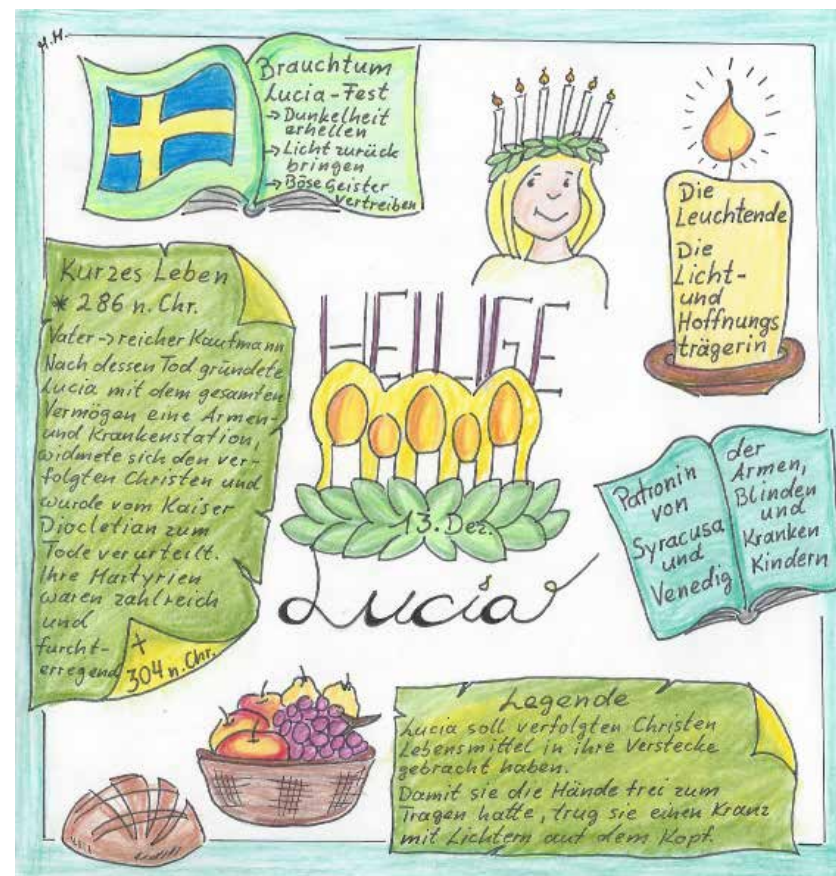 H.H.
Brauchtum
Lucia-Fest
→ Dunkelheit
erhellen
→ Licht zurück
bringen
→ Böse Geister
vertreiben
Die
Leuchtende
Die
Licht-
und
Hoffnungs
trägerin
Kurzes Leben
* 286 n. Chr.
Vater → reicher Kaufmann
Nach dessen Tod gründete
Lucia mit dem gesamten
Vermögen eine Armen-
und Krankenstation,
widmete sich den ver-
folgten Christen und
wurde vom Kaiser
Diocletian zum
Tode verurteilt.
Ihre Martyrien
waren zahlreich
und
furcht-
erregend
+
304 n. Chr.
HEILIGE
13. Dez.
Lucia
Patronin
von
Syracusa
und
Venedig
der
Armen,
Blinden
und
Kranken
Kindern
Legende
Lucia soll verfolgten Christen
Lebensmittel in ihre Verstecke
gebracht haben.
Damit sie die Hände frei zum
Tragen hatte, trug sie einen Kranz
mit Lichtern auf dem Kopf.